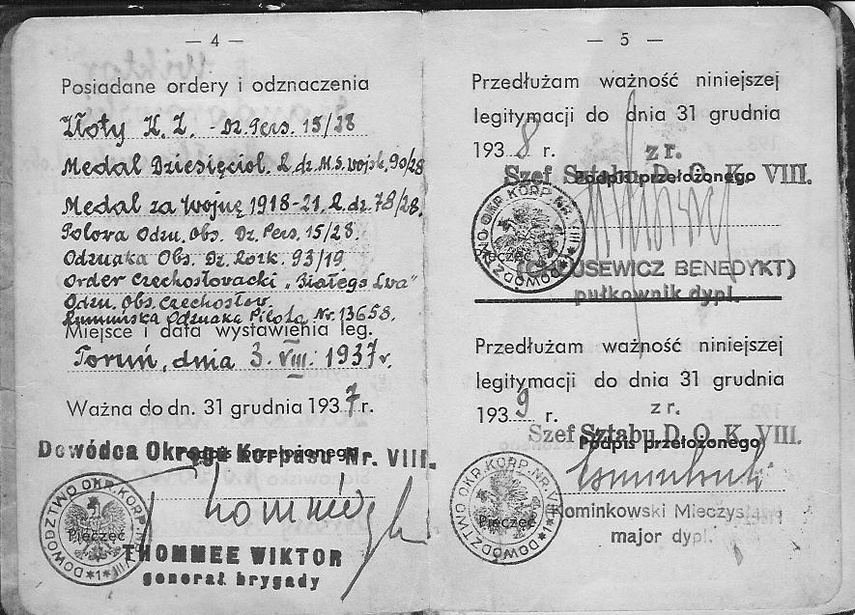 — 4 —
Posiadane ordery i odznaczenia
Złoty K. Z. - Dz. Pers. 15/28
Medal Dziesięciol. L. dz. M.S. Wojsk. 90/28
Medal za Wojnę 1918-21. L. dz. 78/28.
Polowa Odzn. Obs. Dz. Pers. 15/28.
Odznaka Obs. Dz. Rozk. 93/19
Order Czechosłovacki „Białego Lwa"
Odzn. Obs. Czechosłow.
Rumuńska Odznaka Pilota Nr. 13658.
Miejsce i data wystawienia leg.
Toruń, dnia 3. VIII. 1937 r.
Ważna do dn. 31 grudnia 1937 r.
Dowódca Okręgu Korpusu Nr. VIII.
DOWÓDZTWO OKR. KORP. NR. VIII *1*
Pieczęć
THOMMEE WIKTOR
generał brygady
— 5 —
Przedłużam ważność niniejszej
legitymacji do dnia 31 grudnia
1938 r.
z r.
Szef Sztabu D. O. K. VIII.
Podpis przełożonego
DOWÓDZTWO OKR. KORP. NR. VIII *1*
Pieczęć
BENEDYKT)
pułkownik dypl.
Przedłużam ważność niniejszej
legitymacji do dnia 31 grudnia
1939 r.
z r.
Szef Sztabu D. O. K. VIII.
Podpis przełożonego
DOWÓDZTWO OKR. KORP. NR. VIII *1*
Pieczęć
Nominkowski Mieczysław
major dypl.